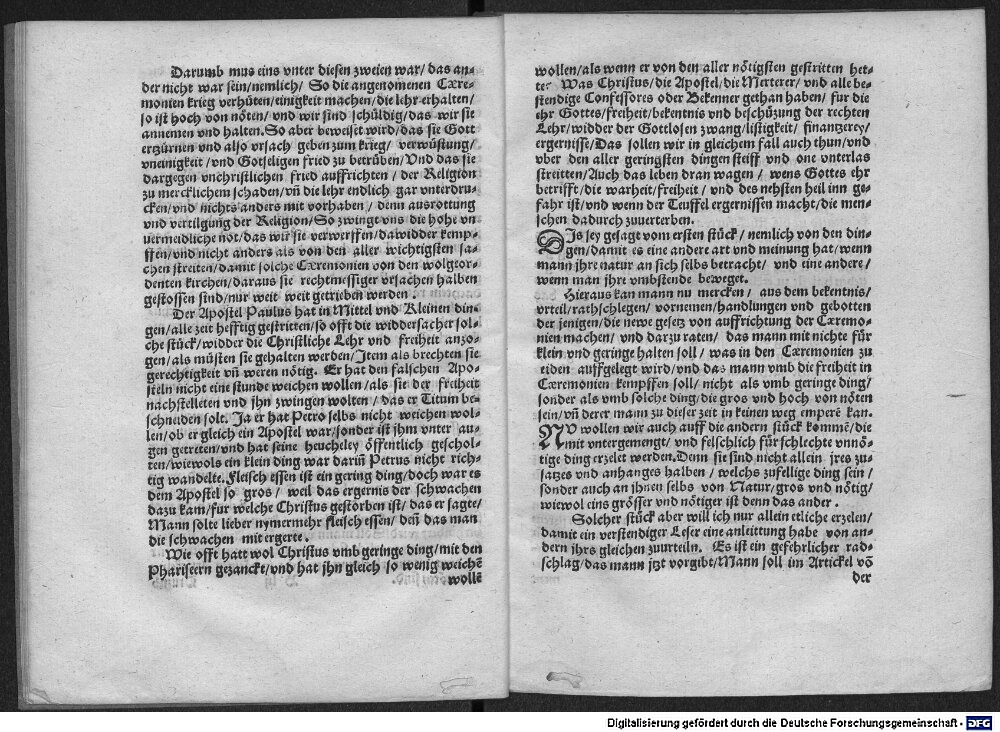 Darumb mus eins vnter diesen zweien war/das an-
der nicht war sein/nemlich/ So die angenomenen Cære-
monien krieg verhüten/einigkeit machen/die lehr erhalten/
so ist hoch von nöten/vnd wir sind schüldig/das wir sie
annemen vnd halten. So aber beweiset wird/das sie Gott
erzürnen vnd also vrsach geben zum krieg/ verwüstung/
vneinigkeit/vnd Gotseligen fried zu betrüben/Vnd das sie
dargegen vnchristlichen fried auffrichten/ der Religion
zu mercklichem schaden/vñ die lehr endlich gar vnterdru-
cken/vnd nichts anders mit vorhaben/ denn ausrottung
vnd vertilgung der Religion/So zwingt vns die hohe vn
uermeidliche not/das wir sie verwerffen/dawidder kemp-
ffen/vnd nicht anders als von den aller wichtigsten sa-
chen streiten/damit solche Cæremonien von den wolgeor-
denten kirchen/daraus sie rechtmessiger vrsachen halben
gestossen sind/nur weit weit getrieben werden.
Der Apostel Paulus hat in Mittel vnd Kleinen din-
gen/alle zeit hefftig gestritten/so offt die widdersacher sol-
che stück/widder die Christliche Lehr vnd freiheit anzo-
gen/als müsten sie gehalten werden/Item als brechten sie
gerechtigkeit vñ weren nötig. Er hat den falschen Apo-
steln nicht eine stunde weichen wollen/als sie der freiheit
nachstelleten vnd jhn zwingen wolten/das er Titum be-
schneiden solt. Ja er hat Petro selbs nicht weichen wol-
len/ob er gleich ein Apostel war/sonder ist jhm vnter au-
gen getreten/vnd hat seine heucheley öffentlich geschol-
ten/wiewols ein klein ding war dariñ Petrus nicht rich-
tig wandelte. Fleisch essen ist ein gering ding/doch war es
dem Apostel so gros/ weil das ergernis der schwachen
dazu kam/fur welche Christus gestorben ist/das er sagte/
Mann solte lieber nymermehr fleisch essen/ deñ das man
die schwachen mit ergerte.
Wie offt hatt wol Christus vmb geringe ding/mit den
Phariseern gezanckt/vnd hat jhn gleich so wenig weichē
wollē
wollen/als wenn er von den aller nötigsten gestritten het-
te? Was Christus/die Apostel/die Merterer/vnd alle be-
stendige Confessores oder Bekenner gethan haben/ fur die
ehr Gottes/freiheit/bekentnis vnd beschüzung der rechten
Lehr/widder der Gottlosen zwang/listigkeit/ finantzerey/
ergernisse/Das sollen wir in gleichem fall auch thun/vnd
vber den aller geringsten dingen steiff vnd one vnterlas
streitten/Auch das leben dran wagen/ wens Gottes ehr
betrifft/die warheit/freiheit/ vnd des nehsten heil inn ge-
fahr ist/vnd wenn der Teuffel ergernissen macht/die men-
schen dadurch zuuerterben.
DIs sey gesagt vom ersten stück/nemlich von den din-
gen/damit es eine andere art vnd meinung hat/wenn
mann jhre natur an sich selbs betracht/ vnd eine andere/
wenn man jhre vmbstende beweget.
Hieraus kan mann nu mercken/ aus dem bekentnis/
vrteil/rathschlegen/ vornemen/handlungen vnd gebotten
der jenigen/die newe gesetz von auffrichtung der Cæremo-
nien machen/ vnd darzu raten/ das mann mit nichte für
klein vnd geringe halten soll/ was in den Cæremonien zu
eiden auffgelegt wird/vnd das mann vmb die freiheit in
Cæremonien kempffen soll/ nicht als vmb geringe ding/
sonder als vmb solche ding/die gros vnd hoch von nöten
sein/vñ derer mann zu dieser zeit in keinen weg emperē kan.
NV wollen wir auch auff die andern stück kommē/die
mit vntergemengt/ vnd felschlich für schlechte vnnö-
tige ding erzelet werden. Denn sie sind nicht allein jres zu-
satzes vnd anhanges halben/ welchs zufellige ding sein/
sonder auch an jhnen selbs von Natur/gros vnd nötig/
wiewol eins grösser vnd nötiger ist denn das ander.
Solcher stück aber will ich nur allein etliche erzelen/
damit ein verstendiger Leser eine anleittung habe von an-
dern jhrs gleichen zuurteiln. Es ist ein gefehrlicher rad-
schlag/das mann jtzt vorgibt/Mann soll im Artickel vō
der
Digitalisierung gefördert durch die Deutsche Forschungsgemeinschaft - DFG